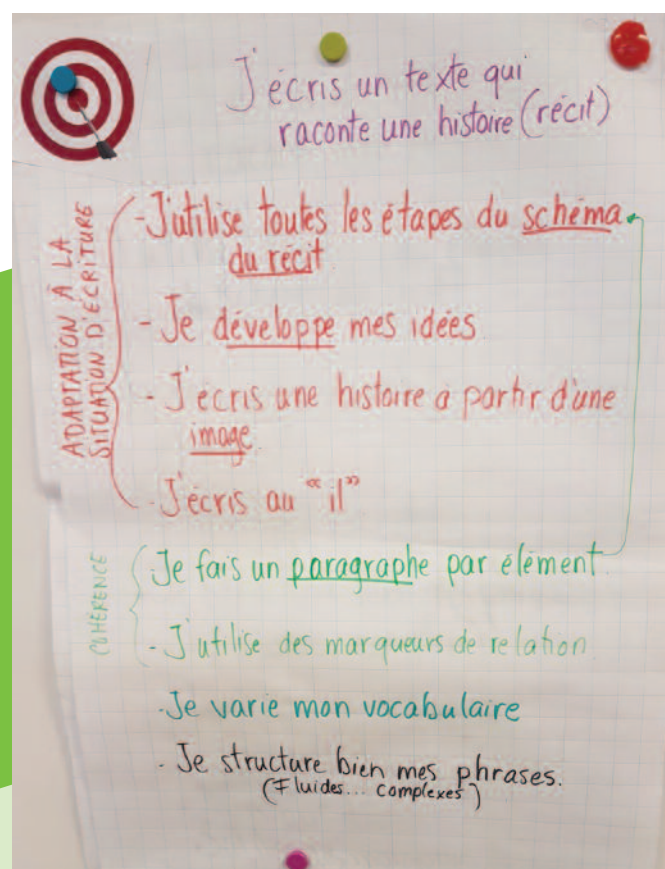 J'écris un texte qui
raconte une histoire (récit)
ADAPTATION À LA
SITUATION D'ÉCRITURE
- J'utilise toutes les étapes du schéma
du récit
- Je développe mes idées
- J'écris une histoire à partir d'une
image
- J'écris au "il"
COHÉRENCE
- Je fais un paragraphe par élément
- J'utilise des marqueurs de relation
- Je varie mon vocabulaire
- Je structure bien mes phrases.
(Fluides... complexes)